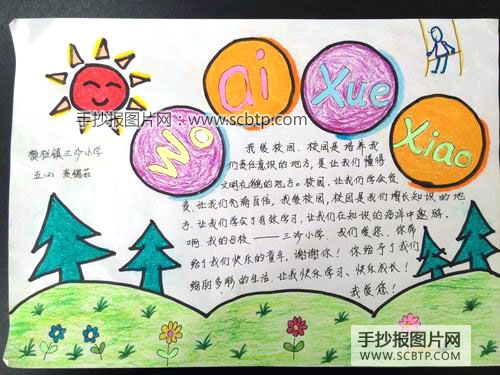 Wo ai Xue Xiao
手抄报图片网
www.scbtp.com
三沙小学
五(2)
我爱校园，校园是培养我
们责任意识的地方，是让我们懂得
文明礼貌的地方。校园，让我们学会负
责，让我们充满自信，我爱校园，校园是我们增长知识的地
方，让我们学会了有效学习，让我们在知识的海洋中遨游。
啊，我的母校——三沙小学，我们爱您，你带
给了我们快乐的童年，谢谢你！你给予了我们
绚丽多彩的生活，让我快乐学习、快乐成长！
我爱您！
手抄报图片网
WWW.SCBTP.COM